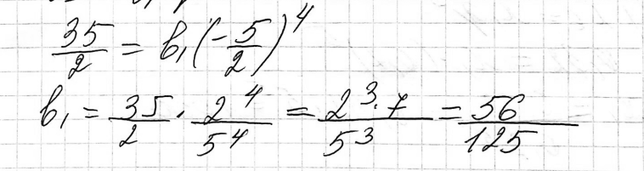 35/2 = b₁(-5/2)⁴
b₁ = 35/2 · 2⁴/5⁴ = 2³·7/5³ = 56/125